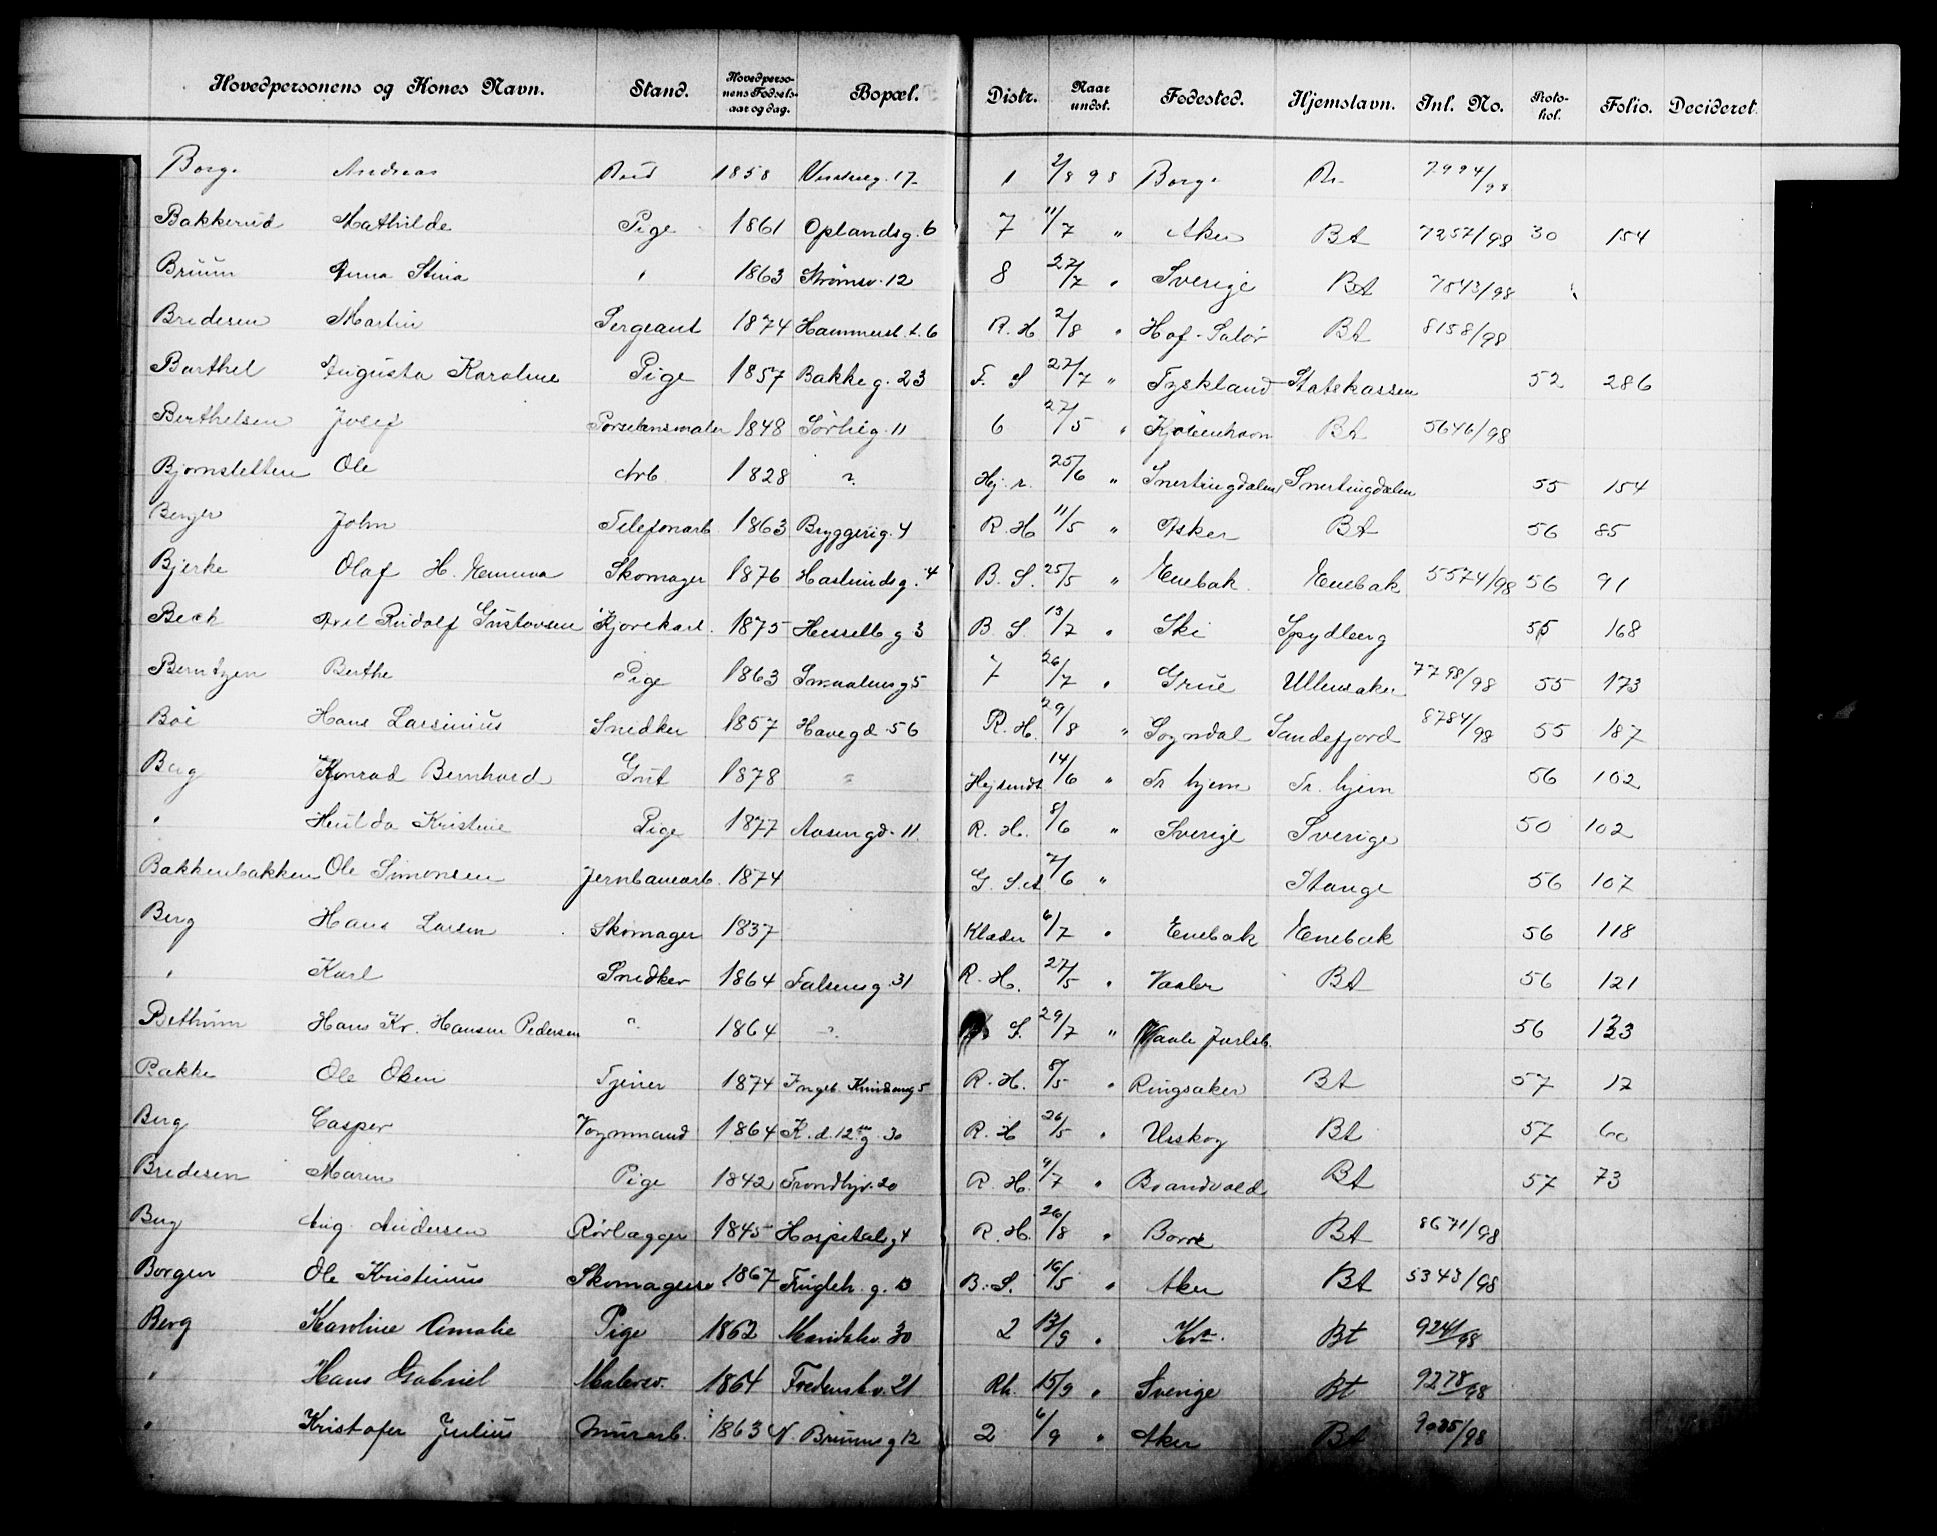 Hovedpersonens og Kones Navn. Stand. Hovedpersonens Fødselsaar og dag. Bopæl. Distr. Naar undst. Fødested. Hjemstavn. Inl. No. Protokol. Folio. Decideret.
Borge Andreas Bud 1858 17 1 2/8 98 Borge 7994/98
Bakkerud Mathilde Pige 1861 Oplandsg. 6 7 11/7 " Aker Bt 7257/98 30 154
Bruun Anna Stina " 1863 Strømsv. 12 8 27/7 " Sverige Bt 7843/98
Bredesen Martin Sergeant 1874 Hammerst. t. 6 R. H 2/8 " Hof-Solør Bt 8158/98
Barthel Augusta Karoline Pige 1857 Bakkeg. 23 F. S 27/7 " Tyskland Statskassen 52 286
Berthelsen Josef Porselensmaler 1848 Sørlig. 11 6 27/5 " Kjøbenhavn Bt 5646/98
Bjørnstetten Ole Arb 1828 ? Hj. r. 25/6 " Snertingdalen Snertingdalen 55 154
Berger John Telefonarb. 1863 Bryggerig. 4 R. H 11/5 " Asker Bt 56 85
Bjerke Olaf H. Emma Skomager 1876 Haslundsg. 4 B. S. 25/5 " Enebak Enebak 5574/98 56 91
Bech Axel Rudolf Gustavsen Kjørekarl. 1875 Hesselb g 3 B. S. 13/7 " Ski Spydberg 55 168
Berntzen Berthe Pige 1863 Smaalens g 5 7 26/7 " Grue Ullensaker 7798/98 55 173
Boe Hans Larsinius Snedker 1857 Havegd. 56 R. H. 29/8 " Sogndal Sandefjord 8784/98 55 187
Berg Konrad Bernhard Gut 1878 " 14/6 " Tr. hjem Tr. hjem 56 102
" Hulda Kristine Pige 1877 Aasengd. 11. R. H. 8/6 " Sverige Sverige 50 102
Bakkenbakken Ole Simonsen Jernbanearb. 1874 G. S. 7/6 " Stange 56 107
Berg Hans Larsen Skomager 1837 6/7 " Enebak Enebak 56 118
" Karl Snedker 1864 Falsens g. 31 R. H. 27/5 " Vaaler Bt 56 121
Bethum Hans Kr. Hansen Pedersen " 1864 ? S. 29/7 " Vaale Jarlsb. 56 133
Bakke Ole Olsen Tjener 1874 Ingeb. 5 R. H. 8/5 " Ringsaker Bt 57 17
Berg Casper Vognmand 1864 K. d. 12tes g. 30 R. H 26/5 " Urskog Bt 57 60
Bredesen Maren Pige 1842 Trondhjv. 20 R. H. 9/7 " Brandvold Bt 57 73
Berg Aug. Andersen Rørlægger 1845 Hospitalsg 4 R. H. 26/8 " Borre Bt 8671/98
Borgen Ole Kristinius Skomagersv. 1867 Fugleh. g. 10 B. S. 16/5 " Aker Bt 5343/98
Berg Karoline Amalie Pige 1862 Maridalsv. 30 2 13/9 " Kra. Bt 9241/98
" Hans Gabriel Malersv. 1864 Fredensb v. 21 Rh. 15/9 " Sverige Bt 9278/98
" Kristofer Julius Murarb. 1863 N. Bruuns g 12 2 6/9 " Aker Bt 9035/98